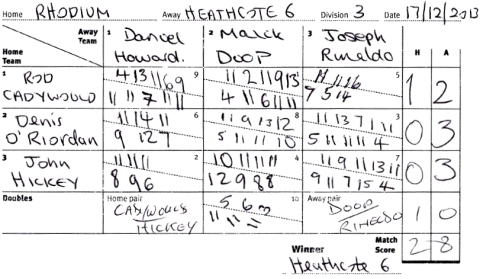 Home RHODIUM Away HEATHCOTE 6 Division 3 Date 17/12/2013
Away Team
Home Team
1 Daniel Howard.
2 Malck DOOP
3 Joseph Rinaldo
H A
1 ROD CADYWOULD
9
4 13 11 6 9
11 11 7 11 11
11 2 11 9 13
4 11 6 11 11
5
11 11 16
7 5 14
1 2
2 Denis O'Riordan
6
11 14 11
9 12 7
8
11 9 13 12
5 11 11 11 10
3
11 13 7 11
5 11 11 11 4
0 3
3 John HICKEY
2
11 11 11
8 9 6
4
10 11 11 11 11
12 9 9 8 8
7
11 9 11 13 11
9 11 7 15 4
0 3
Doubles
Home pair
CADYWOULD HICKEY
10
5 6 3
11 11 11
Away pair
DOOP RINALDO
1 0
Winner
Heathcote 6
Match Score
2 8